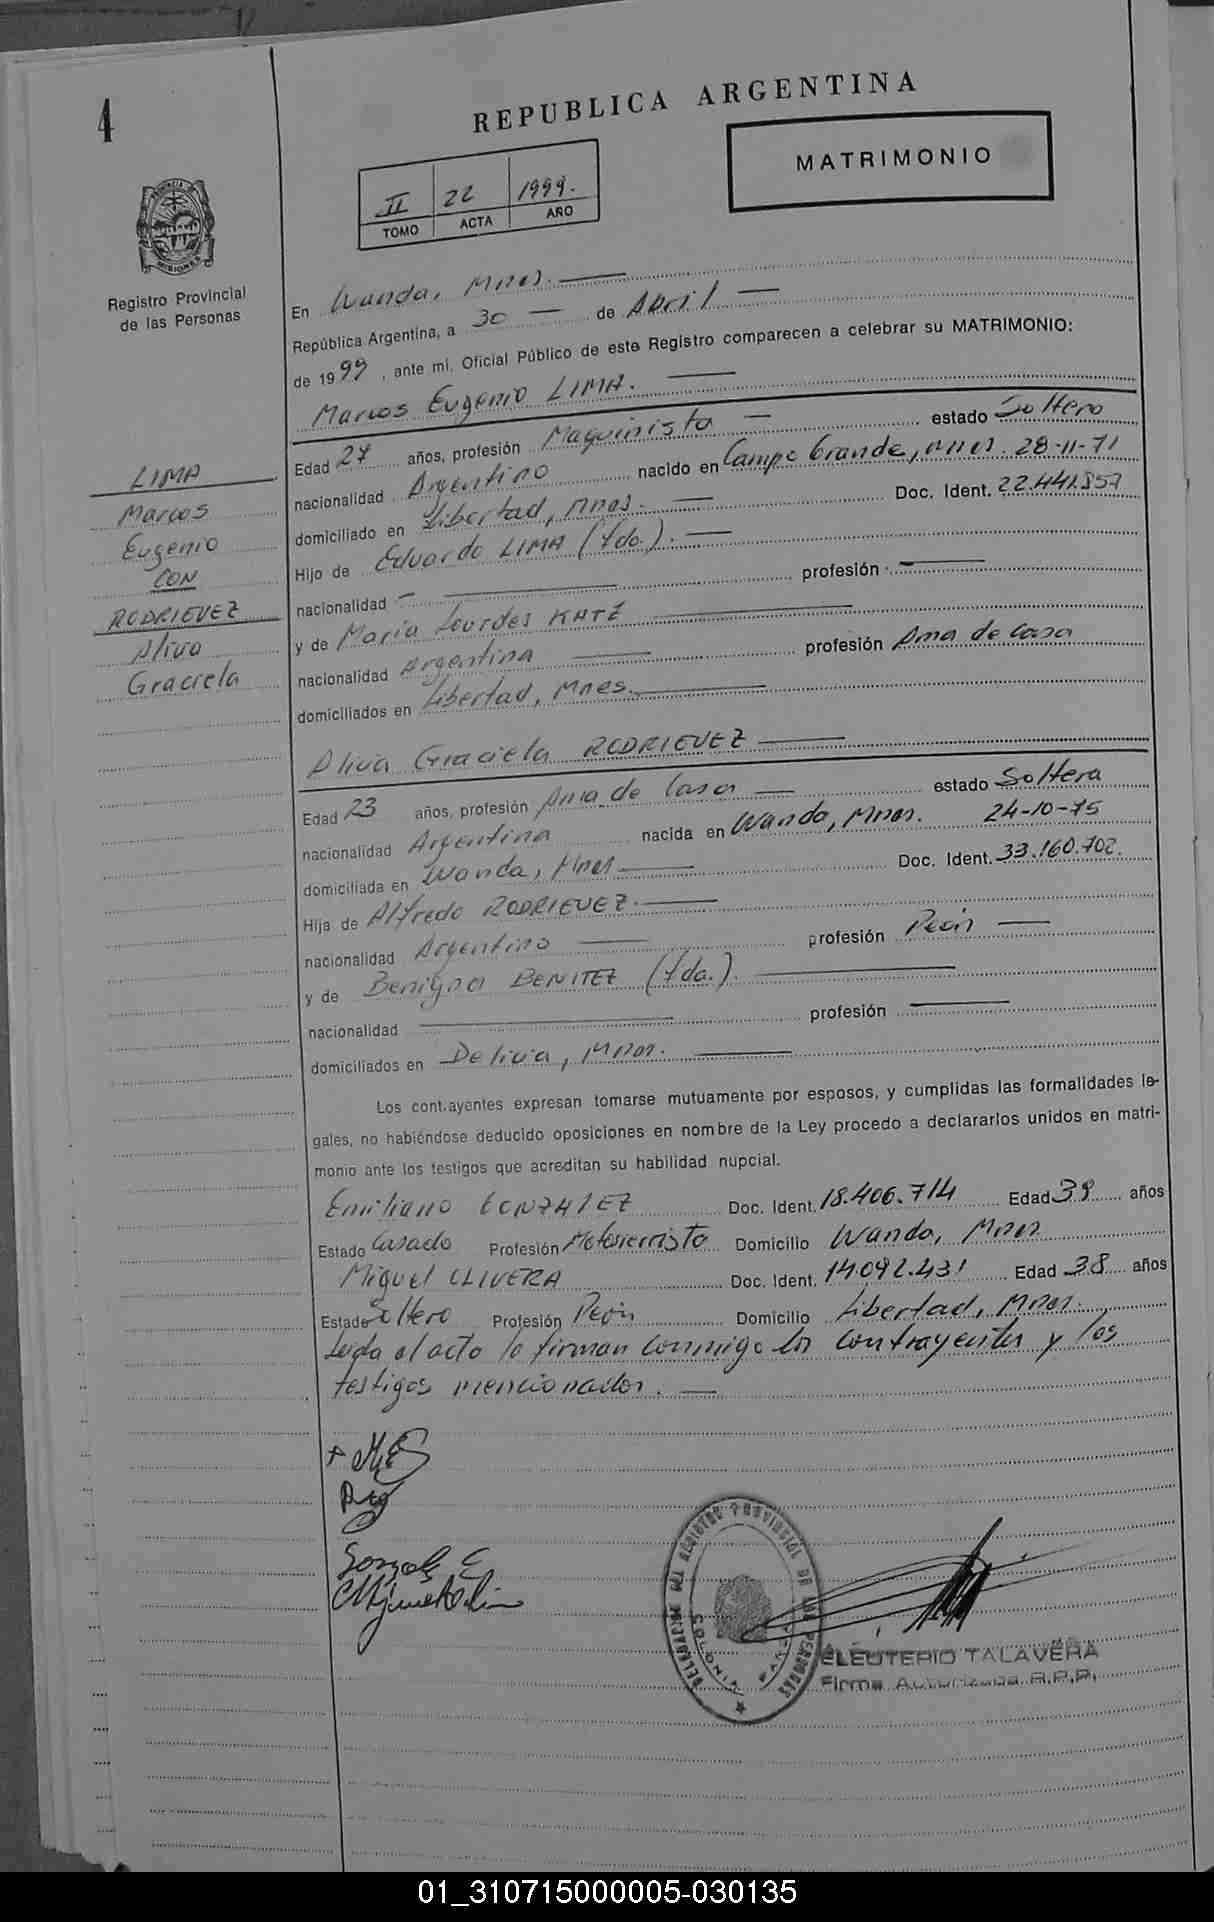 4
REPUBLICA ARGENTINA
MATRIMONIO
II 22 1999.
TOMO ACTA AÑO
PROVINCIA DE
MISIONES
Registro Provincial
de las Personas
En Wanda, Mnes.
República Argentina, a 30 de Abril
de 1999, ante mí, Oficial Público de este Registro comparecen a celebrar su MATRIMONIO:
Marcos Eugenio LIMA.
Edad 27 años, profesión Maquinista estado Soltero
nacionalidad Argentino nacido en Campo Grande, Mnes. 28-11-71
domiciliado en Libertad, Mnes. Doc. Ident. 22.441.857
Hijo de Eduardo LIMA (fdo.).
nacionalidad profesión
y de María Lourdes KATZ
nacionalidad Argentina profesión Ama de Casa
domiciliados en Libertad, Mnes.
LIMA
Marcos
Eugenio
CON
RODRIGUEZ
Graciela
Graciela RODRIGUEZ
Edad 23 años, profesión Ama de Casa estado Soltera
nacionalidad Argentina nacida en Wanda, Mnes. 24-10-75
domiciliada en Wanda, Mnes Doc. Ident. 33.160.702.
Hija de Alfredo RODRIGUEZ.
nacionalidad Argentino profesión Peón
y de Benigna BENITEZ (fda.).
nacionalidad profesión
domiciliados en Delicia, Mnes.
Los contrayentes expresan tomarse mutuamente por esposos, y cumplidas las formalidades le-
gales, no habiéndose deducido oposiciones en nombre de la Ley procedo a declararlos unidos en matri-
monio ante los testigos que acreditan su habilidad nupcial.
Emiliano GONZALEZ Doc. Ident. 18.406.714 Edad 39 años
Estado Casado Profesión Motosierrista Domicilio Wanda, Mnes
Miguel OLIVERA Doc. Ident. 14.092.431 Edad 38 años
Estado Soltero Profesión Peón Domicilio Libertad, Mnes.
Leída el acta la firman conmigo los contrayentes y los
testigos mencionados.
DEL REGISTRO PROVINCIAL DE LAS PERSONAS
COLONIA WANDA
ELEUTERIO TALAVERA
Firma Autorizada R.P.P.
01_310715000005-030135